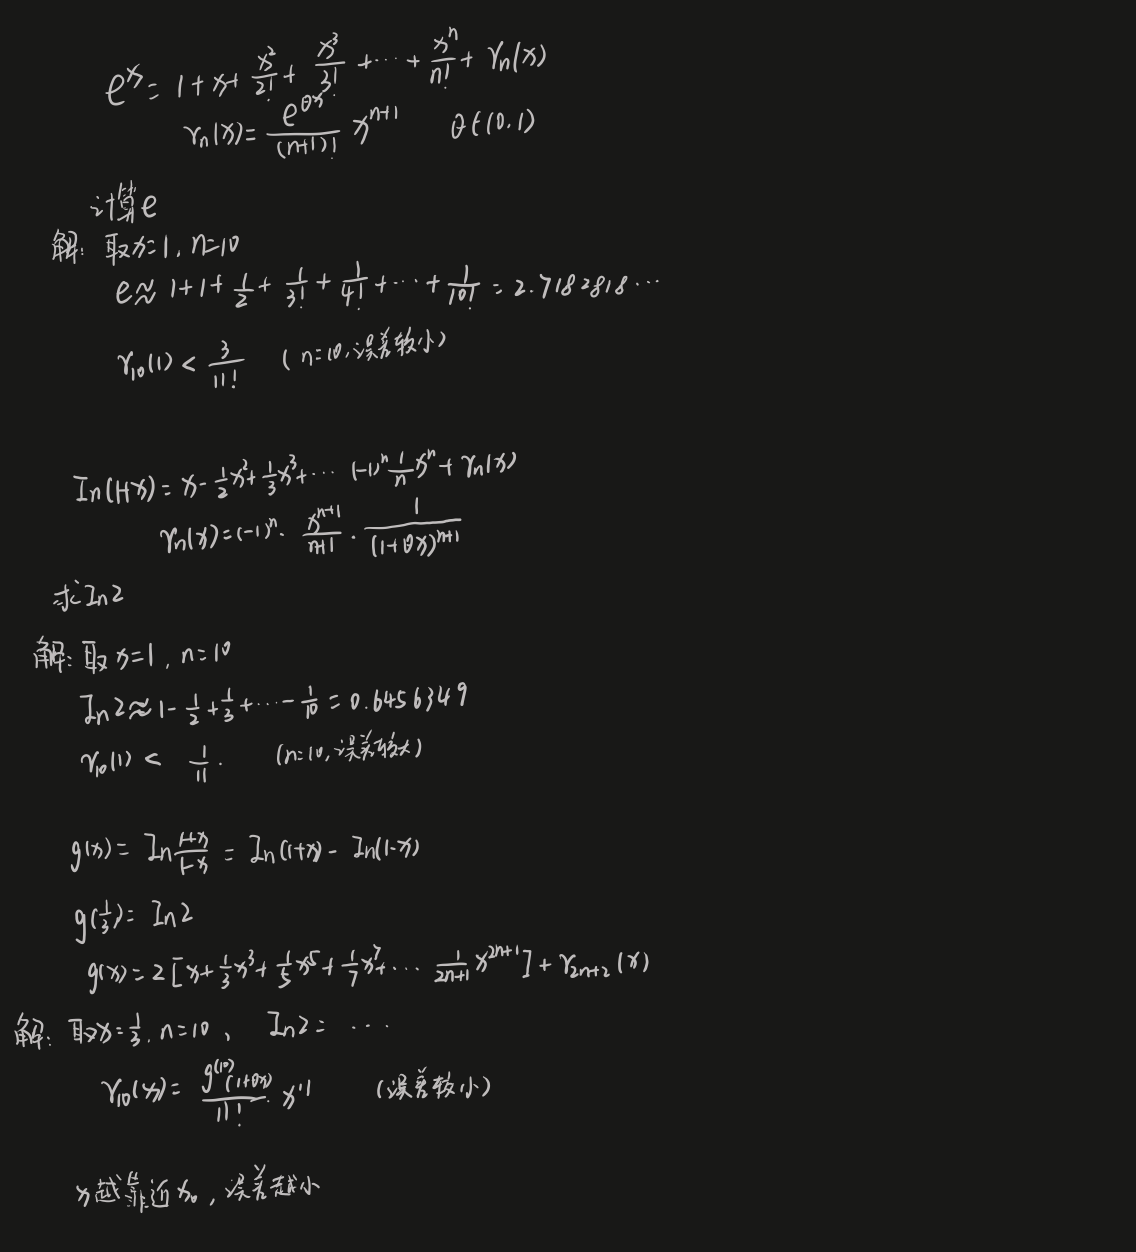 e^x = 1 + x + x²/2! + x³/3! + ··· + x^n/n! + r_n(x)
r_n(x) = e^{θx}/(n+1)! x^{n+1}   θ∈(0,1)
计算e
解: 取x=1, n=10
e ≈ 1+1+1/2+1/3!+1/4!+···+1/10! = 2.7182818···
r_10(1) < 3/11!   (n=10,误差较小)
In(1+x) = x - 1/2x² + 1/3x³ + ··· (-1)^n 1/n x^n + r_n(x)
r_n(x) = (-1)^n · x^{n+1}/n+1 · 1/(1+θx)^{n+1}
求In2
解: 取x=1, n=10
In2 ≈ 1 - 1/2 + 1/3 + ··· - 1/10 = 0.6456349
r_10(1) < 1/11.   (n=10,误差较大)
g(x) = In 1+x/1-x = In(1+x) - In(1-x)
g(1/3) = In2
g(x) = 2[x + 1/3x³ + 1/5x⁵ + 1/7x⁷ + ··· 1/2n+1 x^{2n+1}] + r_{2n+2}(x)
解: 取x=1/3, n=10, In2 = ···
r_10(x) = g^{(10)}(1+θx)/11! x^{11}   (误差较小)
x越靠近x₀, 误差越小